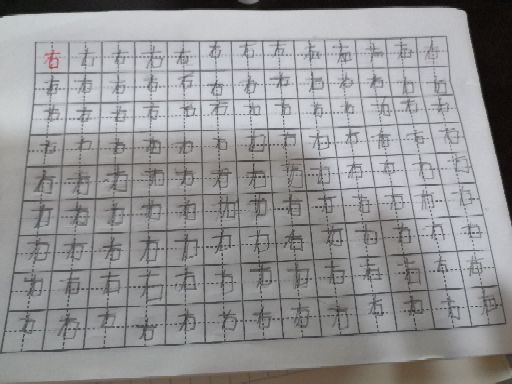 右右右右右右右右右右右右右
右右右右右右右右右右右右右
右右右右右右右右右右右右右
右右右右右右右右右右右右右
右右右右右右右右右右右右右
右右右右右右右右右右右右右
右右右右右右右右右右右右右
右右右右右右右右右右右右右
右右右右右右右右右右右右右